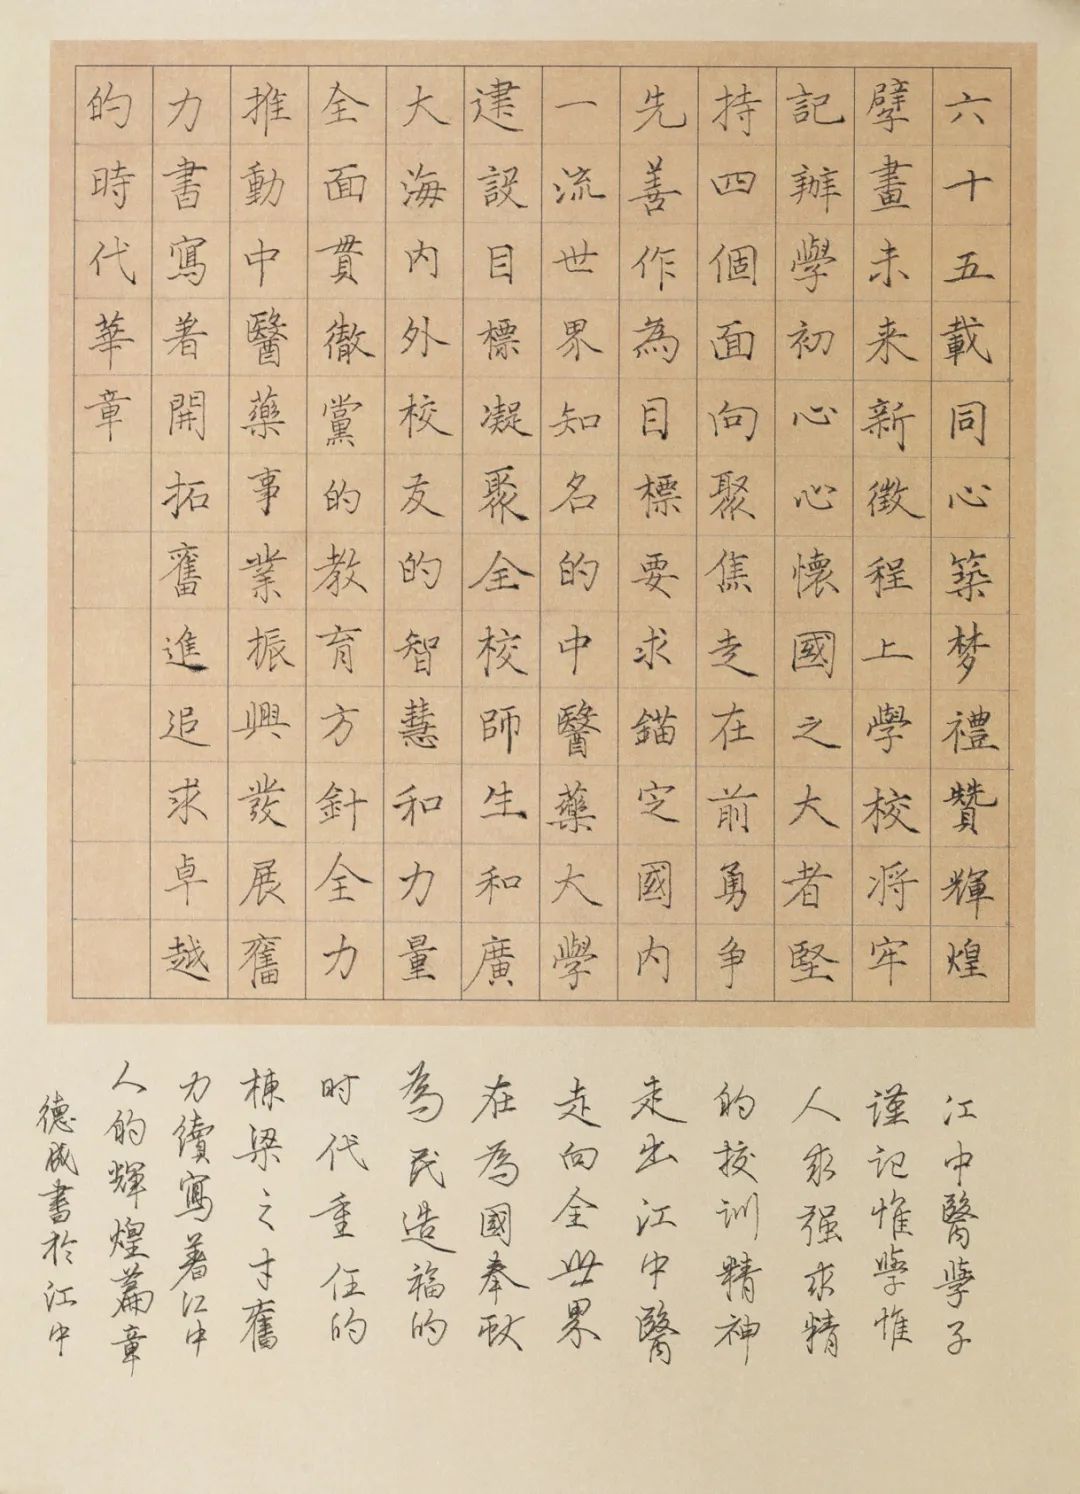 六十五載同心築梦禮贊輝煌
擘畫未来新徵程上學校将牢
記辦學初心心懷國之大者堅
持四個面向聚焦走在前勇争
先善作為目標要求錨定國内
一流世界知名的中醫藥大學
建設目標凝聚全校師生和廣
大海内外校友的智慧和力量
全面貫徹黨的教育方針全力
推動中醫藥事業振興發展奮
力書寫着開拓奮進追求卓越
的時代華章
江中醫學子
謹记惟學惟
人求强求精
的校训精神
走出江中醫
走向全世界
在為國奉献
為民造福的
时代重任的
棟梁之才奮
力續寫着江中
人的輝煌篇章
德成書於江中